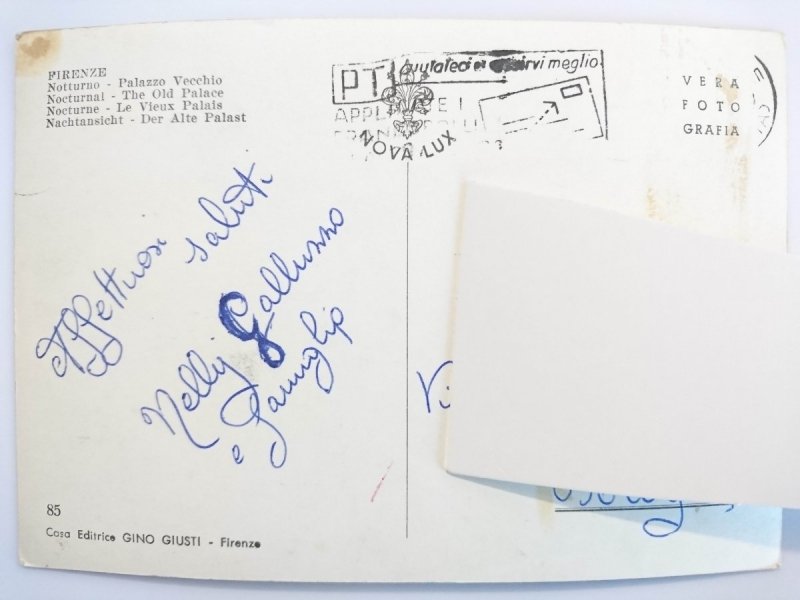 FIRENZE
Notturno - Palazzo Vecchio
Nocturnal - The Old Palace
Nocturne - Le Vieux Palais
Nachtansicht - Der Alte Palast
PT
meglio
NOVA LUX
VERA
FOTO
GRAFIA
Affettuosi saluti
Nelly Galluzzo
e Famiglia
85
Casa Editrice GINO GIUSTI - Firenze